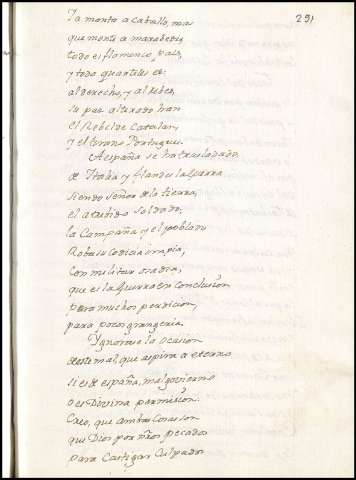 291
Ya monta a caballo, mas
que monta a marabedis,
todo es flamenco, pais,
y todo quartiles es:
al derecho, y al rebes,
su paz alterado han
el Rebelde Catalan,
y el tirano Portugues.
A españa se ha trasladado
de Italia y flandes la guerra
siendo Señor de la tierra,
el atrebido Soldado,
la Campaña y el poblado
Roba su codicia impia,
con militar osadia,
que es la Guerra en conclusion
para muchos perdicion,
para pocos grangeria.
Ygnorase la ocasion
deste mal, que aspira a eterno
si es de españa, mal govierno
o es Divina permission.
Creo, que ambas Cosas son
que Dios por nr̃os pecados
para Castigar Culpados